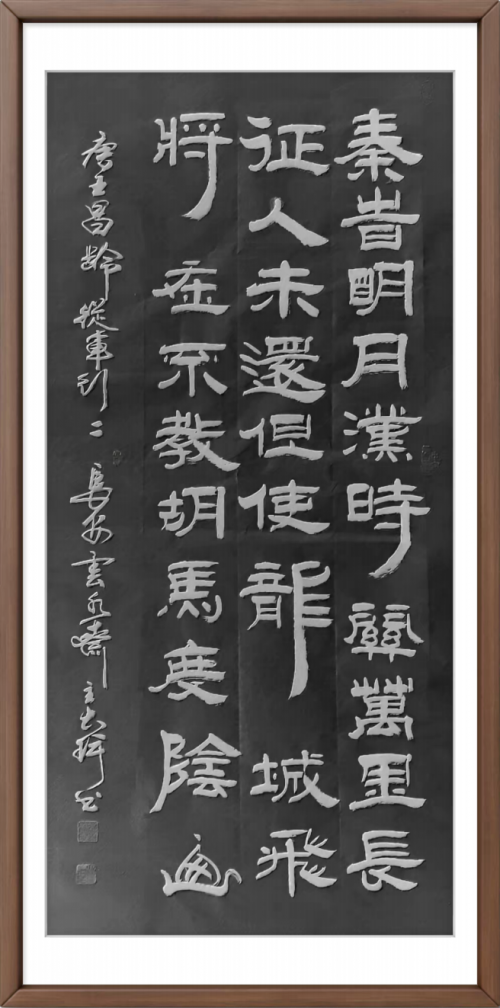 秦旹明月漢時關萬里長
征人未還但使龍城飛
將在不教胡馬度陰山
唐王昌齡從軍行二 長安雲水齋主